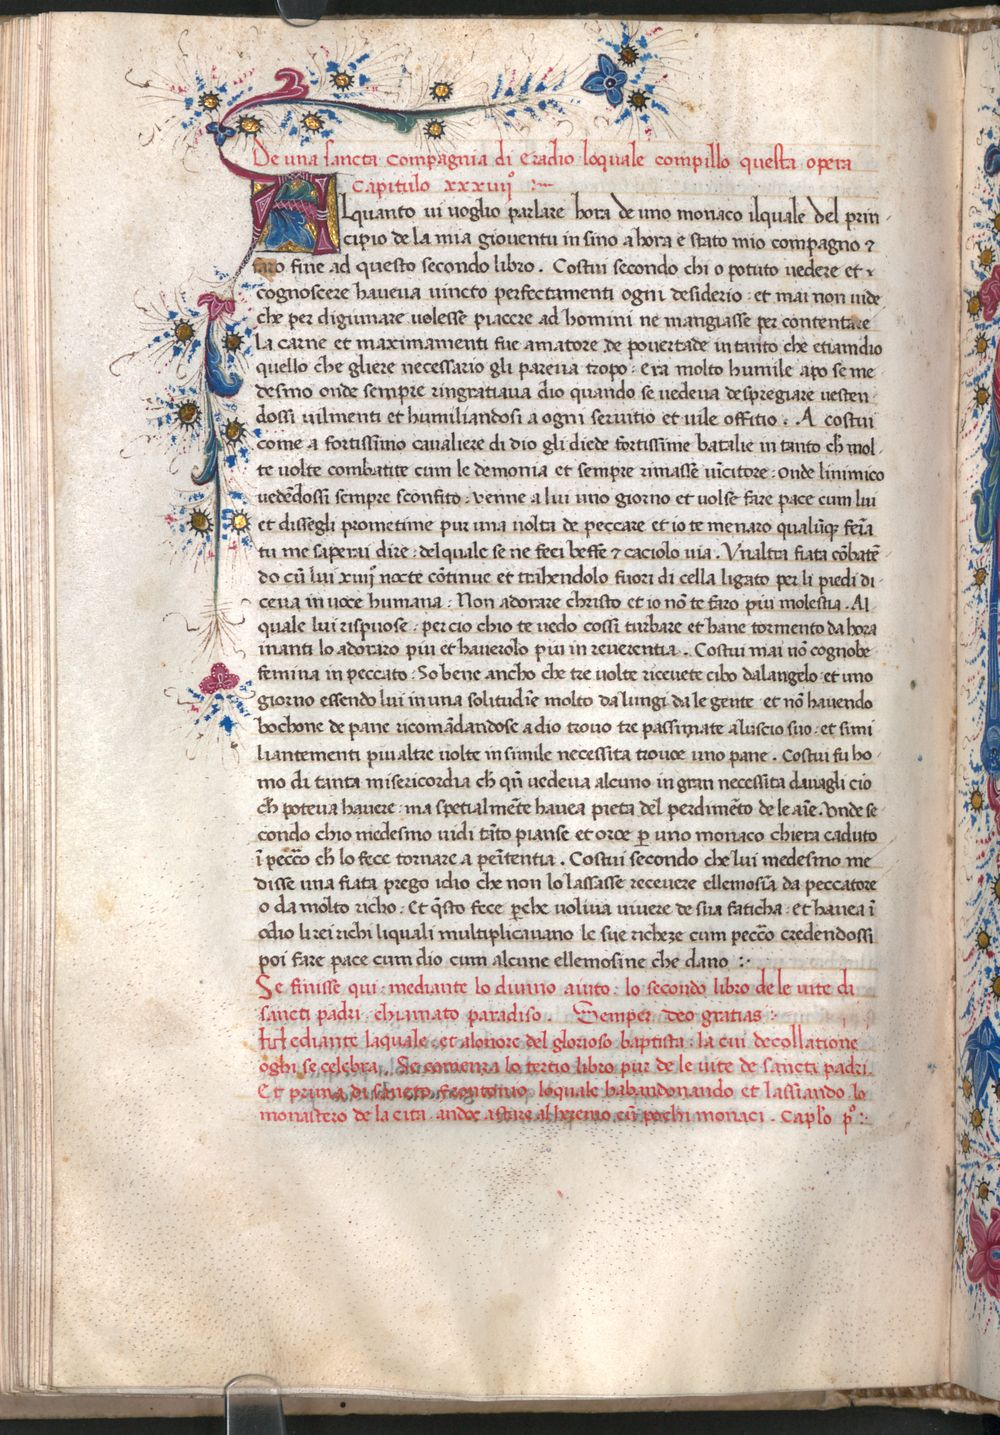 De una sancta compagnia di eradio loquale compillo questa opera
Capitulo xxxiiijº
Alquanto ui uoglio parlare hora de uno monaco ilquale del prin
cipio de la mia giouentu in sino a hora e stato mio compagno ⁊
faro fine ad questo secondo libro . Costui secondo chi o potuto uedere et
cognoscere haueua uincto perfectamenti ogni desiderio : et mai non uide
che per digiunare uolesse piacere ad homini ne mangiasse per contentare
la carne et maximamenti fue amatore de pouertade in tanto che etiamdio
quello che gliere necessario gli pareua tropo : era molto humile apo se me
desmo onde sempre ringratiaua dio quando se uedeua despregiare uesten
dossi uilmenti et humiliandosi a ogni seruitio et uile offitio . A costui
come a fortissimo caualiere di dio gli diede fortissime batalie in tanto ch̄ mol
te uolte combatite cum le demonia et sempre rimasse uīcitore : onde linimico
uedēdossi sempre sconfito : uenne a lui uno giorno et uolse fare pace cum lui
et dissegli prometime pur una uolta de peccare et io te menaro qualūq; feīa
tu me saperai dire : delquale se ne feci beffe ⁊ caciolo uia . Vnaltra fiata cōbatē
do cū lui xiiijº nocte cōtinue et trahendolo fuori di cella ligato per li piedi di
ceua in uoce humana : Non adorare christo et io nō te faro piu molestia . Al
quale lui rispuose : per cio chio te uedo cossi turbare et hane tormento da hora
inanti lo adoraro piu et hauerolo piu in reuerentia . Costui mai nō cognobe
femina in peccato : So bene ancho che tre uolte riceuete cibo dalangelo : et uno
giorno essendo lui in una solitudīe molto da lungi da le gente et nō hauendo
bochone de pane ricomādandose a dio trouo tre passimate a luscio suo : et simi
liantementi piu altre uolte in simile necessita trouoe uno pane . Costui fu ho
mo di tanta misericordia ch̄ qn̄ uedeua alcuno in gran necessita dauagli cio
ch̄ poteua hauere : ma spetialmēte hauea pieta del perdimēto de le aīe . Vnde se
condo chio medesmo uidi tāto pianse et oroe ꝑ uno monaco chiera caduto
ī pecc̄o ch̄ lo fece tornare a penītentia . Costui secondo che lui medesmo me
disse una fiata prego idio che non lo lassasse receuere ellemosīa da peccatore
o da molto richo : Et q̄sto fece ꝑche uoliua uiuere de sua faticha : et hauea ī
odio li rei richi liquali multiplicauano le sue richeze cum pecc̄o credendossi
poi fare pace cum dio cum alcune ellemosine che dano :·
Se finisse qui : mediante lo diuino aiuto : lo secondo libro de le uite di
sancti padri : chiamato paradiso . Semper deo gratias :·
Mediante laquale : et alonore del glorioso baptista : la cui decollatione
oghi se celebra . Se comenza lo tertio libro pur de le uite de sancti padri.
Et prima di sancto frontonio loquale habandonando et lassando lo
monastero de la cita andoe a stare al heremo cū pochi monaci . Caplo pº :·